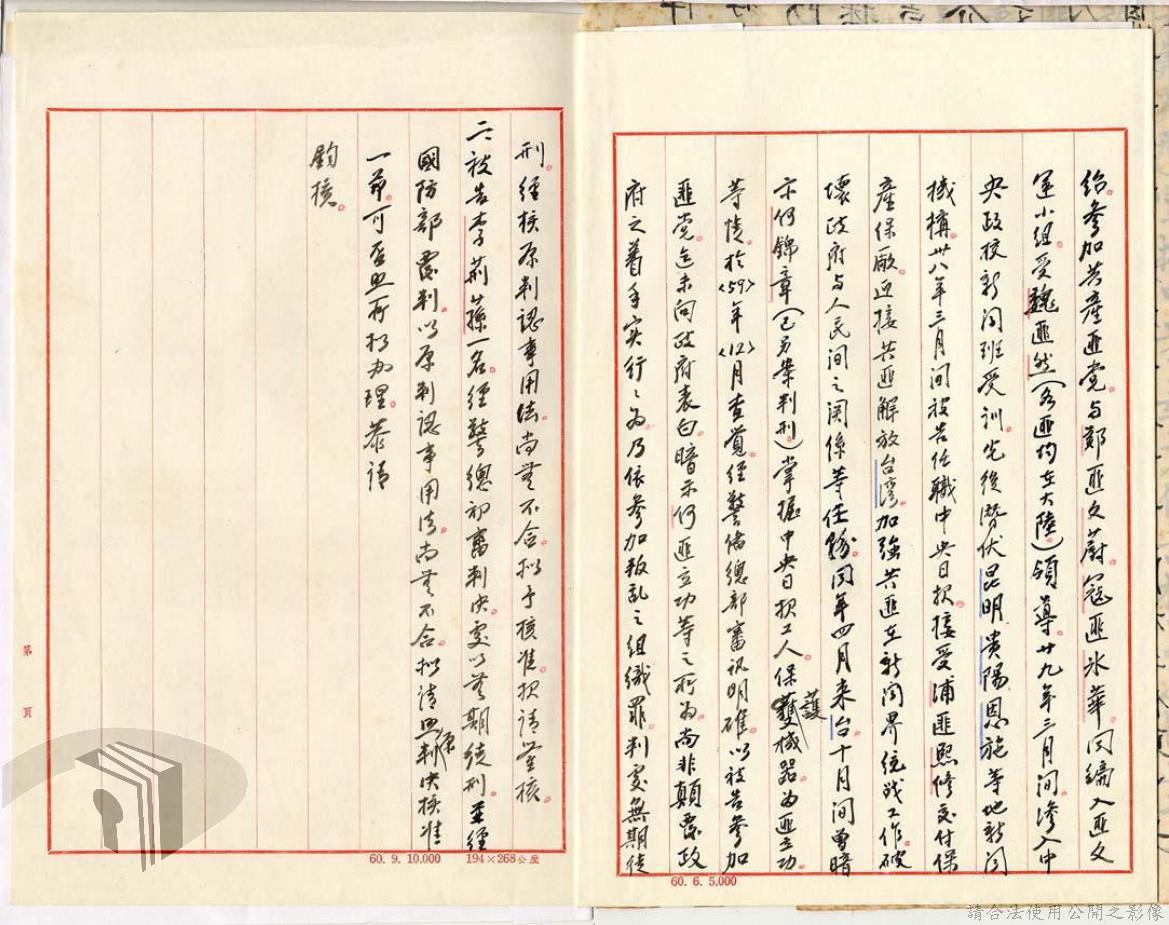 給。參加共產匪党。与鄭匪文蔚。寇匪氷華。同編入匪文
運小組。受魏匪然(各匪均在大陸)領導。廿九年三月間。滲入中
央政校新聞班受訓。先後潛伏昆明貴陽恩施等地新聞
機構。卅八年三月間被告任職中央日报。接受浦匪熙修交付保
產保廠。迎接共匪解放台湾。加強共匪在新聞界統战工作。破
壞政府与人民間之関係等任務。同年四月来台。十月間曾暗
示何錦章(已另案判刑)掌握中央日报工人。保護機器。为匪立功。
等情。於<59>年<12>月查覚。经警俻總部審讯明確。以被告參加
匪党。迄未向政府表白。暗示何匪立功等之所為。尚非顛覆政
府之着手实行行为。乃依參加叛乱之組織罪。判處無期徒
刑。经核原判認事用法。尚無不合。拟予核准。报请鉴核。
二、被告李荊蓀一名。经警總初審判决。處以無期徒刑。並经
國防部覆判。以原判認事用法。尚無不合。拟请照原判决核准
一节。可否照所拟办理。恭请
鈞核。
第 頁
60. 9. 10,000 194×268公厘
60. 6. 5,000
請合法使用公開之影像